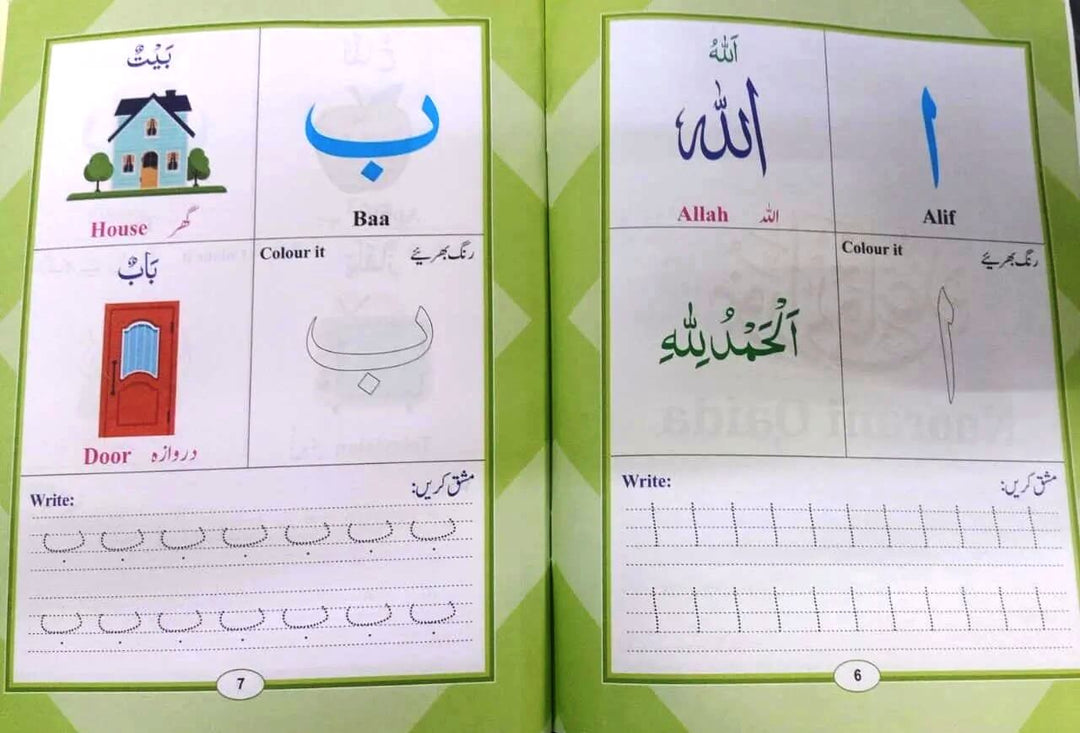 اَللّٰهُ
الله
ا
Allah الله
Alif
Colour it رنگ بھریئے
اَلْحَمْدُ لِلّٰهِ
ا
Write: مشق کریں:
ا ا ا ا ا ا ا ا ا ا ا
ا ا ا ا ا ا ا ا ا ا ا
6
بَيْتٌ
ب
House گھر
Baa
بَابٌ
Colour it رنگ بھریئے
ب
Door دروازہ
Write: مشق کریں:
ب ب ب ب ب ب ب
ب ب ب ب ب ب ب
7